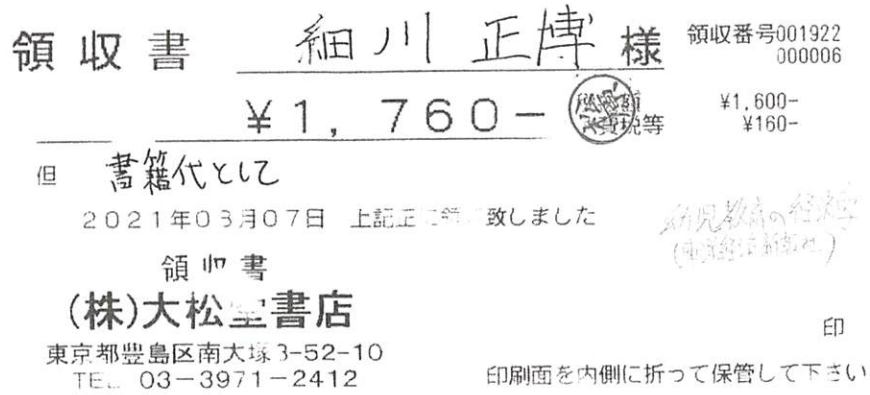 領収書 細川 正博 様 領収番号001922
000006
¥1,760- 税抜額 ¥1,600-
消費税等 ¥160-
但 書籍代として
2021年03月07日 上記正に領 致しました
幼児教育の経済学
(東洋経済新報社)
領収書
(株)大松堂書店
東京都豊島区南大塚3-52-10
TEL 03-3971-2412
印
印刷面を内側に折って保管して下さい